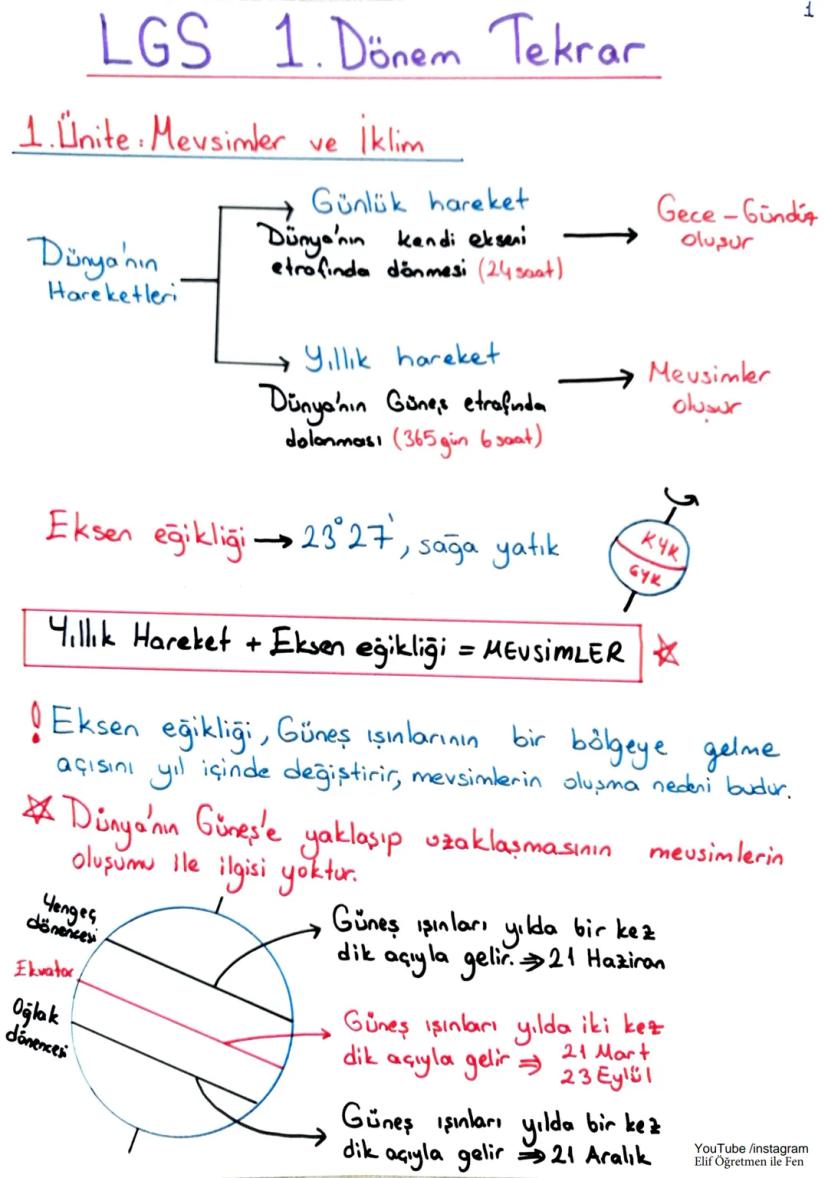 1
LGS 1. Dönem Tekrar
1. Ünite: Mevsimler ve İklim
Dünya'nın
Hareketleri
Günlük hareket
Dünya'nın kendi ekseni
etrafında dönmesi (24 saat)
Gece - Gündüz
oluşur
Yıllık hareket
Dünya'nın Güneş etrafında
dolanması (365 gün 6 saat)
Mevsimler
oluşur
Eksen eğikliği → 23° 27', sağa yatık
KYK
GYK
Yıllık Hareket + Eksen eğikliği = MEVSİMLER
! Eksen eğikliği, Güneş ışınlarının bir bölgeye gelme
açısını yıl içinde değiştirir, mevsimlerin oluşma nedeni budur.
Dünya'nın Güneş'e yaklaşıp uzaklaşmasının mevsimlerin
oluşumu ile ilgisi yoktur.
Yengeç
dönencesi
Güneş ışınları yılda bir kez
dik açıyla gelir. ⇒ 21 Haziran
Ekvator
Güneş ışınları yılda iki kez
dik açıyla gelir ⇒ 21 Mart
23 Eylül
Oğlak
dönencesi
Güneş ışınları yılda bir kez
dik açıyla gelir ⇒ 21 Aralık
YouTube /instagram
Elif Öğretmen ile Fen